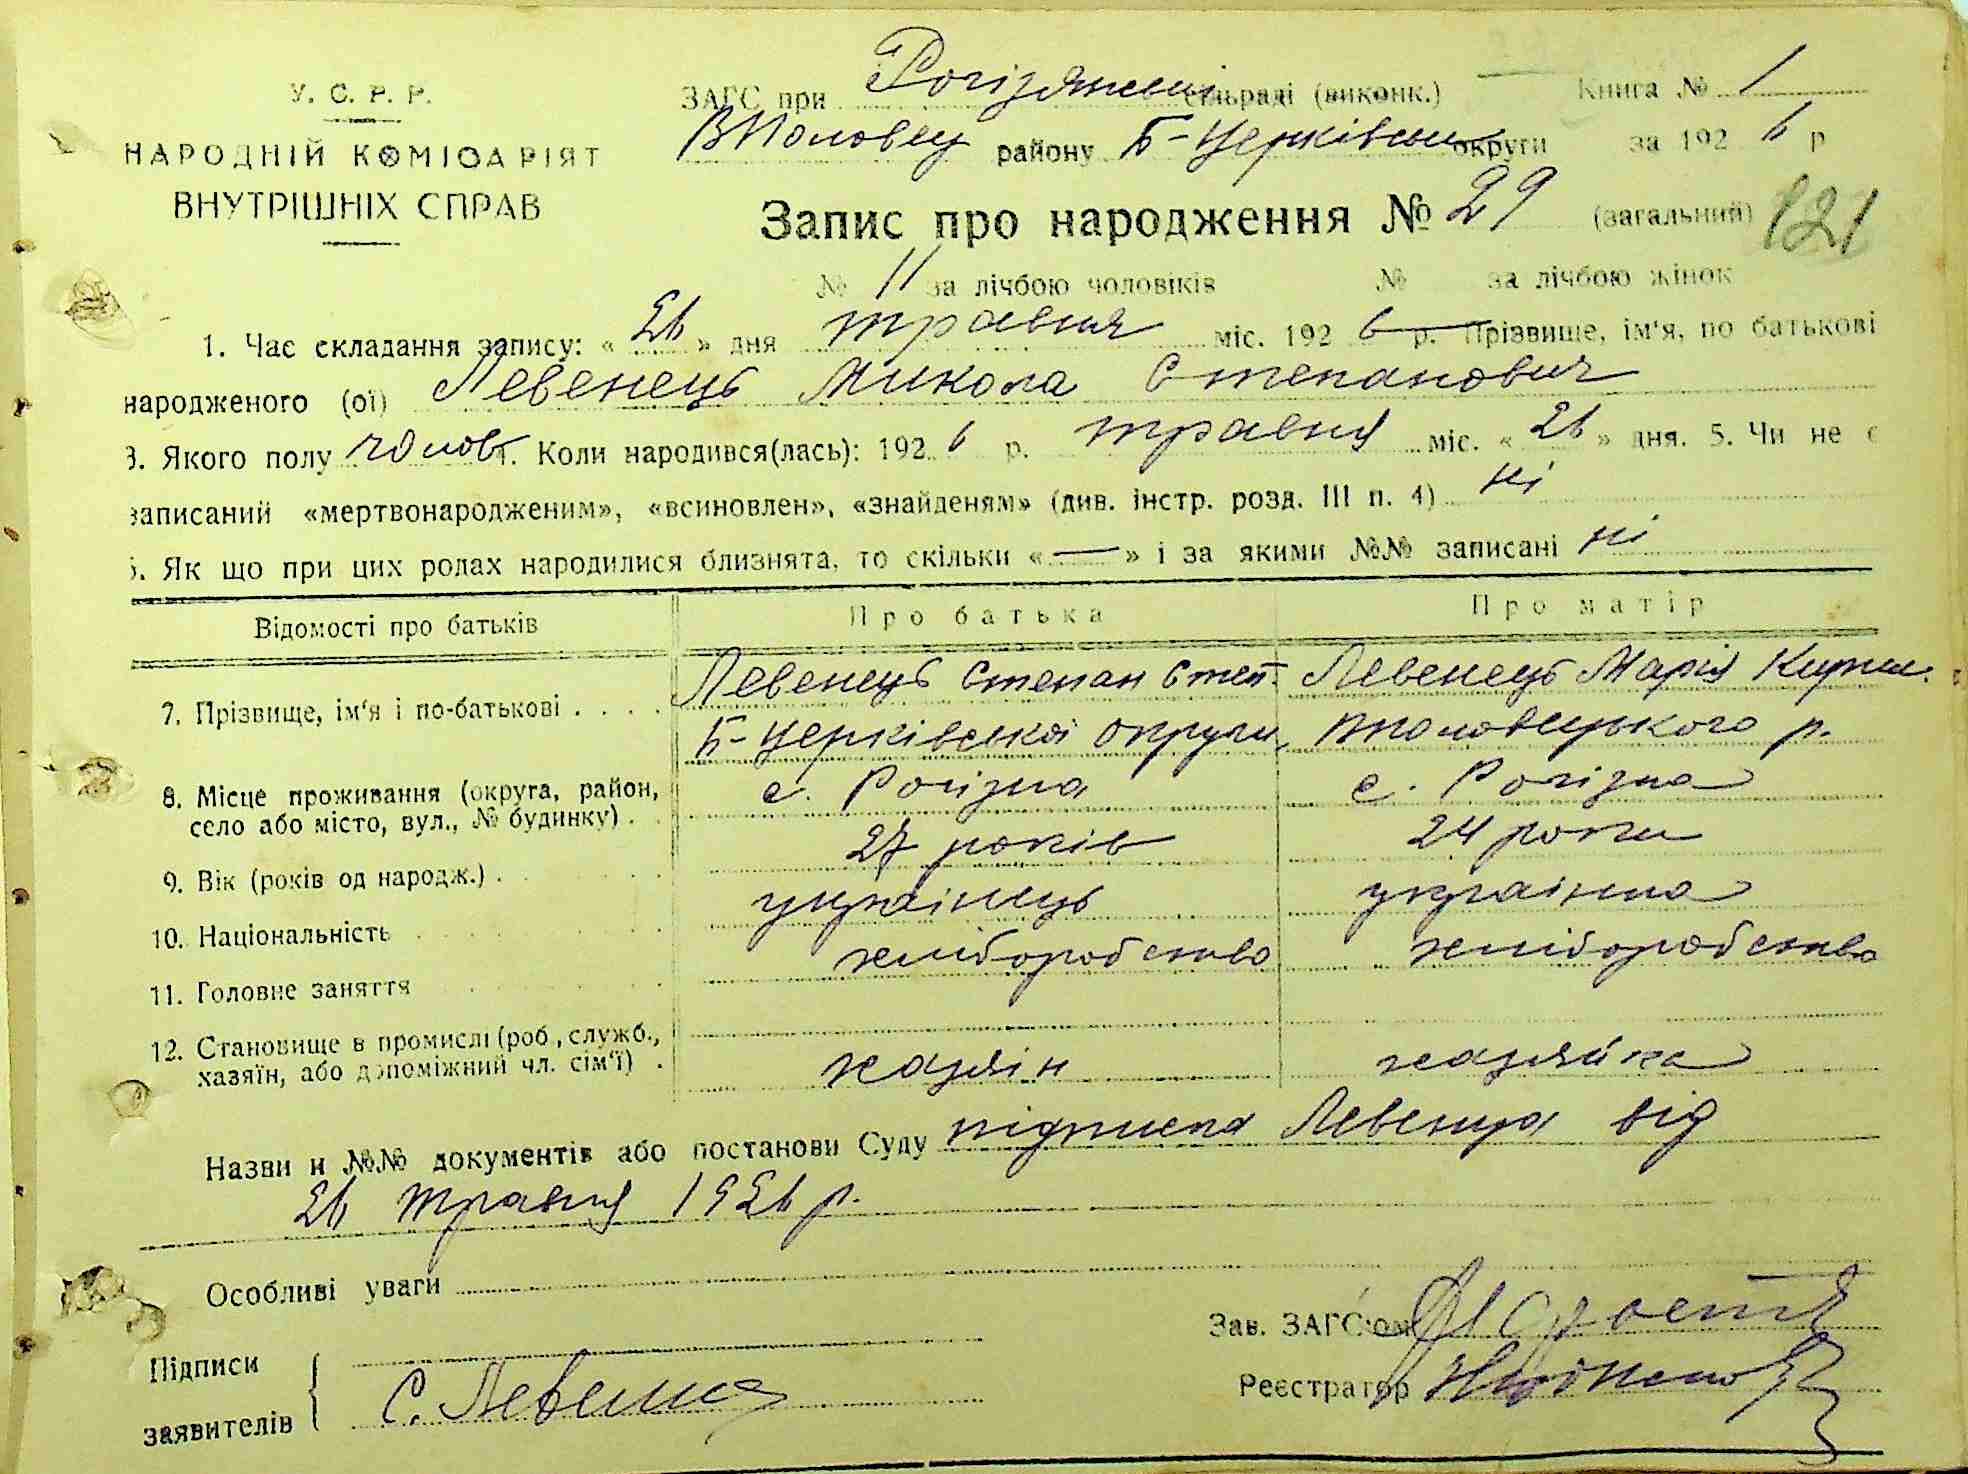 У. С. Р. Р.
НАРОДНІЙ КОМІСАРІЯТ
ВНУТРІШНІХ СПРАВ
ЗАГС при Рогізянські сільраді (виконк.) Книга № 1
ВПоловец району Б-Церківськ округи за 1926 р
Запис про народження № 29 (загальний) 121
№ 11 за лічбою чоловіків № за лічбою жінок
1. Час складання запису: « 26 » дня травня міс. 1926 р. Прізвище, ім'я, по батькові
народженого (ої) Левенець Микола Степанович
3. Якого полу чолов. Коли народився(лась): 1926 р. травня міс. « 26 » дня. 5. Чи не є
записаний «мертвонародженим», «всиновлен», «знайденям» (див. інстр. розд. III п. 4) ні
6. Як що при цих родах народилися близнята, то скільки « — » і за якими №№ записані ні
Відомості про батьків Про батька Про матір
7. Прізвище, ім'я і по-батькові . . . . Левенець Степан Степ. Левенець Марія Кирил.
Б-Церківської округи, ВПоловецького р.
8. Місце проживання (округа, район, село або місто, вул., № будинку) . с. Рогізна с. Рогізна
9. Вік (років од народж.) . 27 років 24 роки
10. Національність українець українка
11. Головне заняття хліборобство хліборобство
12. Становище в промислі (роб., служб., хазяїн, або допоміжний чл. сім'ї) . хазяін хазяйка
Назви и №№ документів або постанови Суду підписка Левенця від
26 травня 1926 р.
Особливі уваги
Зав. ЗАГС'ом
Підписи
заявителів С. Левенец
Реєстратор